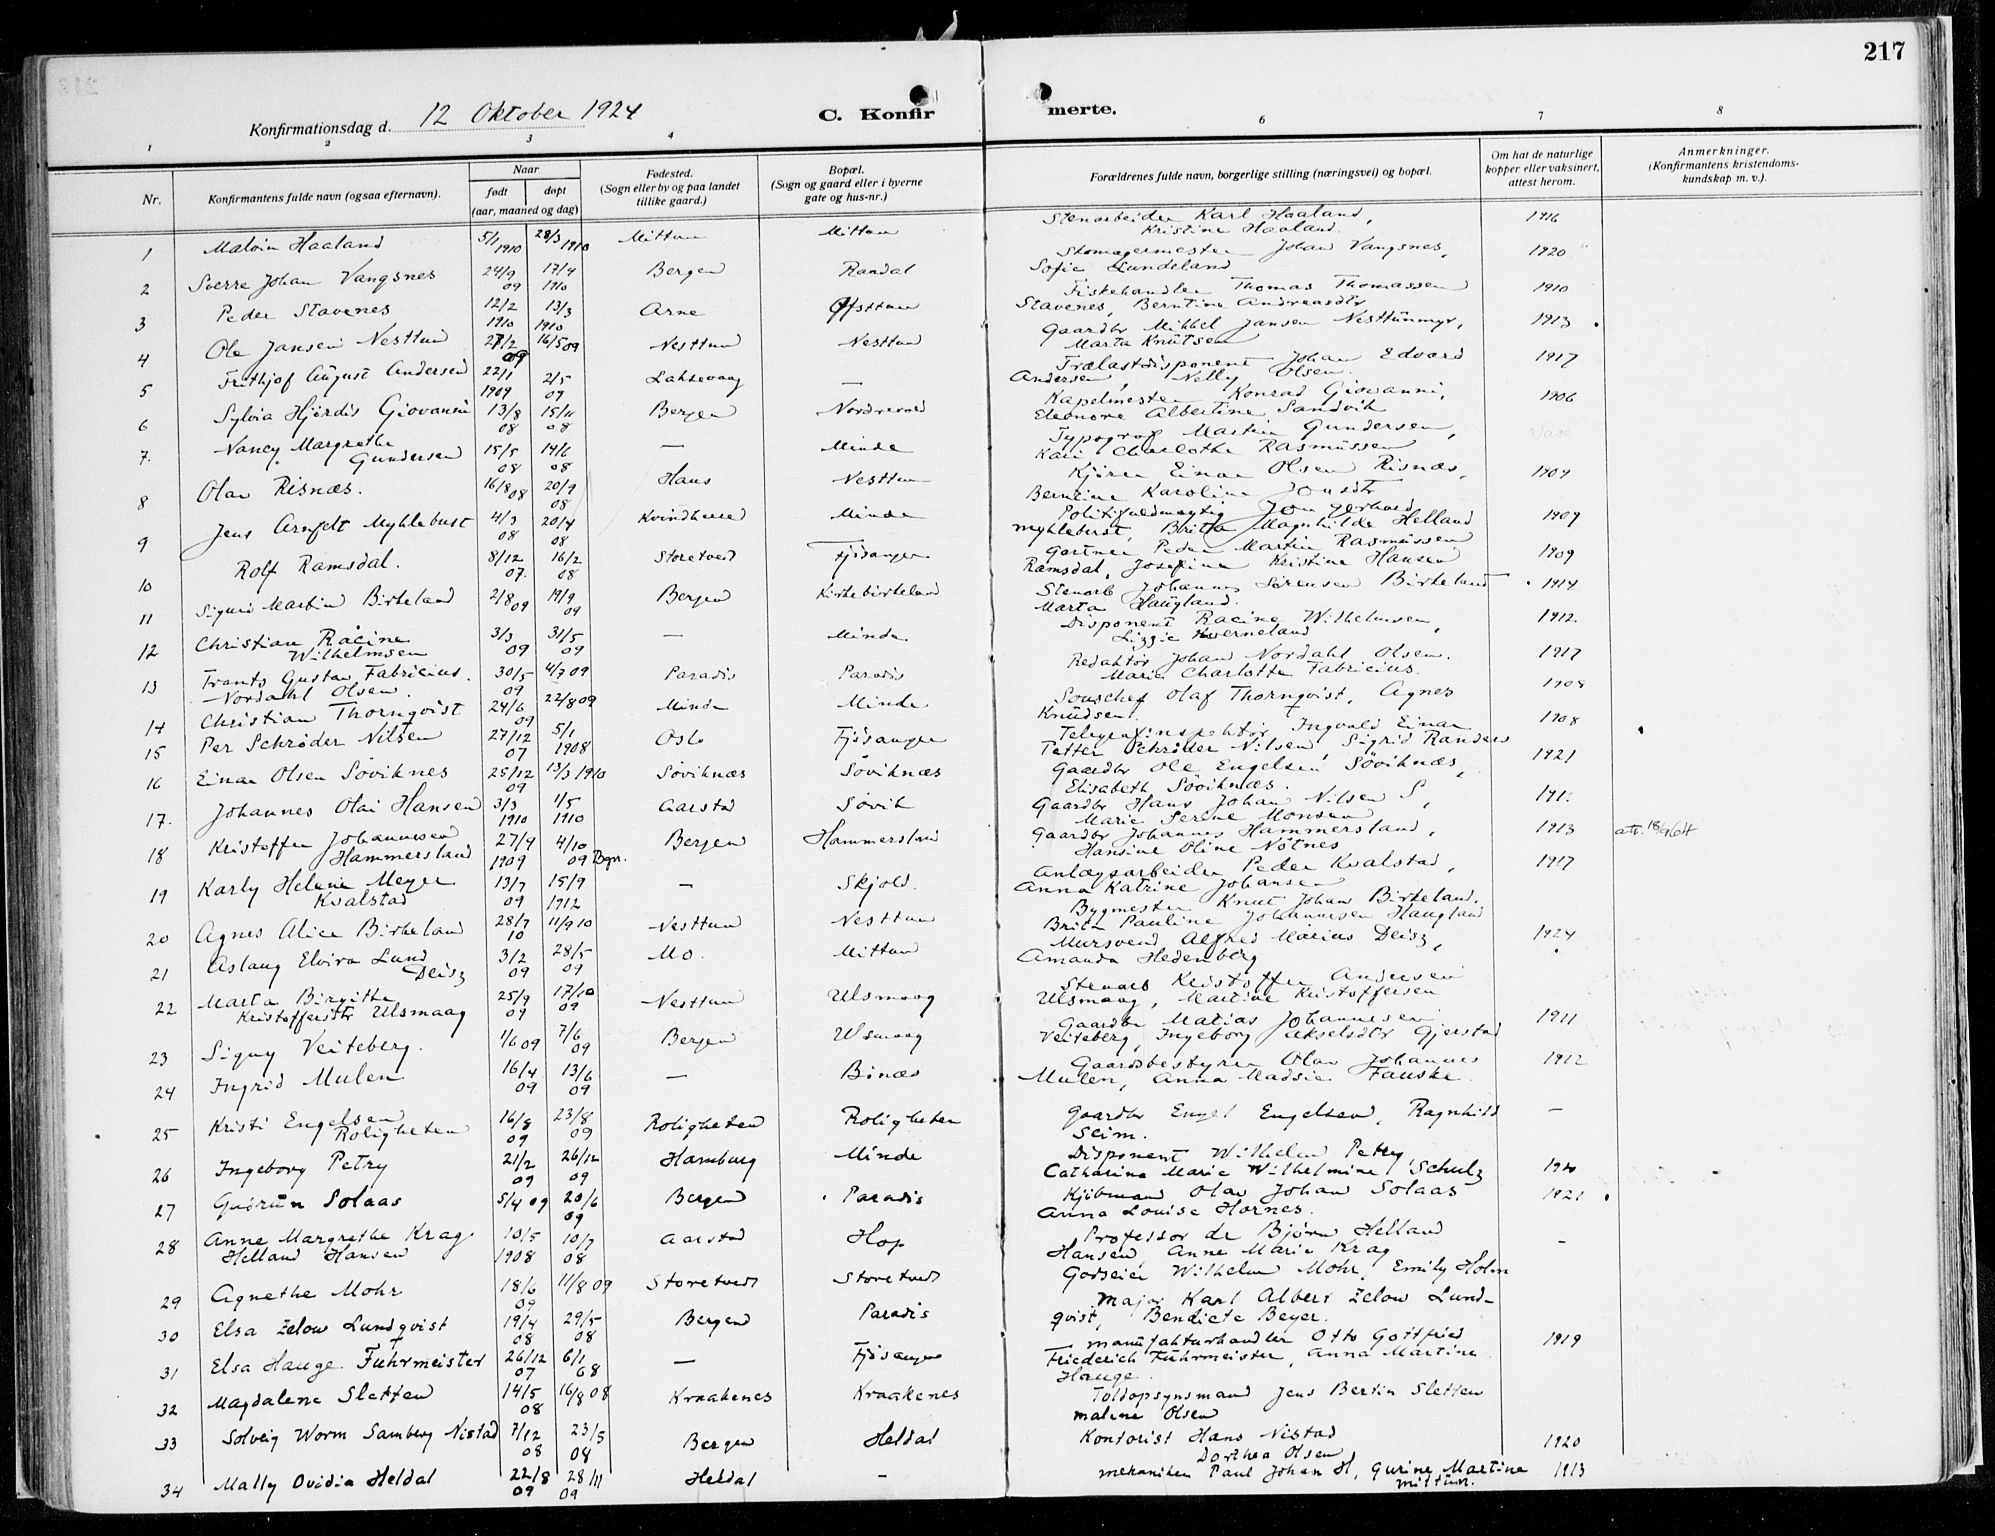 217
Konfirmationsdag d. 12 Oktober 1924
C. Konfirmerte.
1 2 3 4 6 7 8
Nr. Konfirmantens fulde navn (ogsaa efternavn). Naar født døpt (aar, maaned og dag) Fødested. (Sogn eller by og paa landet tillike gaard.) Bopæl. (Sogn og gaard eller i byerne gate og hus-nr.) Forældrenes fulde navn, borgerlige stilling (næringsvei) og bopæl. Om hat de naturlige kopper eller vaksinert, attest herom. Anmerkninger. (Konfirmantens kristendomskundskap m. v.).
1 Malvin Haaland 5/1 1910 28/3 1910 Mittun Mittun Stenarbeider Karl Haaland, Kristine Haaland. 1916
2 Sverre Johan Vangsnes 24/9 09 17/4 1910 Bergen Raadal Skomagermester Johan Vangsnes, Sofie Lundeland 1920
3 Peder Stavenes 12/2 1910 13/3 1910 Arne Øfsttun Fiskehandler Thomas Thomassen Stavenes, Berntine Andreasdtr 1910
4 Ole Jansen Nesttun 27/2 09 16/5 09 Nesttun Nesttun Gaardbr Mikkel Jansen Nesttunmyr, Marta Knutsen 1913
5 Frithjof August Andersen 22/1 1909 2/5 09 Laksevaag — Trælastdisponent Johan Edvard Andersen, Nelly Olsen. 1917
6 Sylvia Hjørdis Giovanni 13/8 08 15/11 08 Bergen Nordrevold Kapelmester Konrad Giovanni, Eleonore Albertine Sandvik 1906
7. Nancy Margrethe Gundersen 15/5 08 14/6 08 — Minde Typograf Martin Gundersen, Kari Charlothe Rasmussen Vacc.
8 Olav Risnæs. 16/8 08 20/9 08 Haus Nesttun Kjører Einar Olsen Risnæs, Berntine Karoline Jonsdtr 1909
9 Jens Arnfelt Myklebust 4/3 08 20/4 08 Kvindherred Minde Politifuldmægtig Jon Gerhard Myklebust, Britha Magnhilde Helland 1909
10 Rolf Ramsdal. 8/12 07. 16/2 08 Storetvedt Fjøsanger Gartner Peder Martin Rasmussen Ramsdal, Josefine Kristine Hansen 1909
11 Sigurd Martin Birkeland 2/8 09 19/9 09 Bergen Kirkebirkeland Stenarb Johannes Sørensen Birkeland Marta Haugland. 1914
12 Christian Racine Wilhelmsen 3/3 09 31/5 09 — Minde Disponent Racine Wilhelmsen, Lizzie Kverneland 1912
13 Frants Gustav Fabricius Nordahl Olsen. 30/5 09 4/7 09 Paradis Paradis Redaktør Johan Nordahl Olsen. Marie Charlotte Fabricius. 1917
14 Christian Thornqvist 24/6 09 22/8 09 Minde Minde Souschef Olaf Thornqvist, Agnes Knudsen. 1908
15 Per Schrøder Nilsen 27/12 07 5/1 1908 Oslo Fjøsanger Telegrafinspektør Ingvald Einar Petter Schrøder Nilsen Sigrid Randers 1908
16 Einar Olsen Søviknes 25/12 09 13/3 1910 Søviknæs Søviknæs Gaardbr Ole Engelsen Søviknæs, Elisabeth Søviknæs. 1921
17. Johannes Olai Hansen 3/3 1910 1/5 1910 Aarstad Søvik Gaardbr Hans Johan Nilsen S, Marie Serine Monsen
18 Kristoffer Johannesen Hammersland 27/9 1909 4/10 09 Bgn. Bergen Hammersland Gaardbr Johannes Hammersland, Hansine Oline Nøtnes 1913
19 Karly Helene Meyer Kvalstad 13/7 09 15/9 1912 — Skjold. Anlægsarbeider Peder Kvalstad, Anna Katrine Johansen 1917
20 Agnes Alice Birkeland 28/7 10 11/9 10 Nesttun Nesttun Bygmester Knut Johan Birkeland. Brita Pauline Johannesen Haugland
21 Aslaug Elvira Lund Deisz 3/2 09 28/5 09 Mo. Mittun Mursvend Alfred Marius Deisz, Amanda Hedenberg 1924
22 Marta Birgithe Kristoffersdtr Ulsmaag 25/9 09 17/10 09 Nesttun Ulsmaag Stenarb Kristoffer Andersen Ulsmaag, Martine Kristoffersen
23 Signy Veiteberg. 1/6 09 7/6 09 Bergen Ulsmaag Gaardbr Matias Johannesen Veiteberg, Ingeborg Akselsdtr Gjerstad 1911
24 Ingrid Mulen 16/4 09 13/6 09 — Bønæs Gaardsbestyrer Olav Johannes Mulen, Anna Madsie Fauske. 1912
25 Kristi Engelsen Roligheten 16/8 09 23/8 09 Roligheten Roligheten Gaardbr Engel Engelsen, Ragnhild Seim. —
26 Ingeborg Petry 21/2 09 26/12 09 Hamburg Minde Disponent Wilhelm Petry Catharina Marie Wilhelmine Schulz 1920
27 Gudrun Solaas 5/4 09 20/6 09 Bergen Paradis Kjøbmand Olav Johan Solaas Anna Louise Hornes. 1921
28 Anne Margrethe Krag Helland Hansen 10/5 1908 10/7 08 Aarstad Hop Professor dr Bjørn Helland Hansen, Anne Marie Krag —
29 Agnethe Mohr 18/6 09 11/8 09 Storetvedt Storetvedt Godseier Wilhelm Mohr, Emily Holm
30 Elsa Zelow Lundqvist 19/4 08 29/5 08 Bergen Paradis Major Karl Albert Zelow Lundqvist, Bendicte Beyer.
31 Elsa Hauge Fuhrmeister 26/12 07 6/1 08 — Fjøsanger Manufakturhandler Otto Gottfried Friederich Fuhrmeister, Anna Martine Hauge. 1919
32 Magdalene Sletten 14/5 08 16/8 08 Kraakenes Kraakenes Toldopsynsmand Jens Bertin Sletten Malene Olsen
33 Solveig Worm Samberg Nistad 7/12 08 23/5 08 Bergen Heldal Kontorist Hans Nistad Dorthea Olsen 1920
34 Mally Ovidia Heldal 22/8 09 28/11 09 Heldal — Mekaniker Paul Johan H, Gurine Martine Mittun. 1913